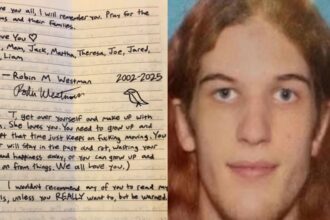 ve you all, I will remember you. Pray for the
ms and their families.
ove You ♡
, Mam, Jack, Martha, Theresa, Joe, Jared,
Liam
— Robin M. Westman 2002-2025
I, get over yourself and make up with
. She loves you. You need to grow up and
pt that time just keeps on fucking moving. You
will stay in the past and rot, wasting your
and happiness away, or you can grow up and
on from things. We all love you.)
I wouldn't recommend any of you to read my
ls, unless you REALLY want to, but be warned.